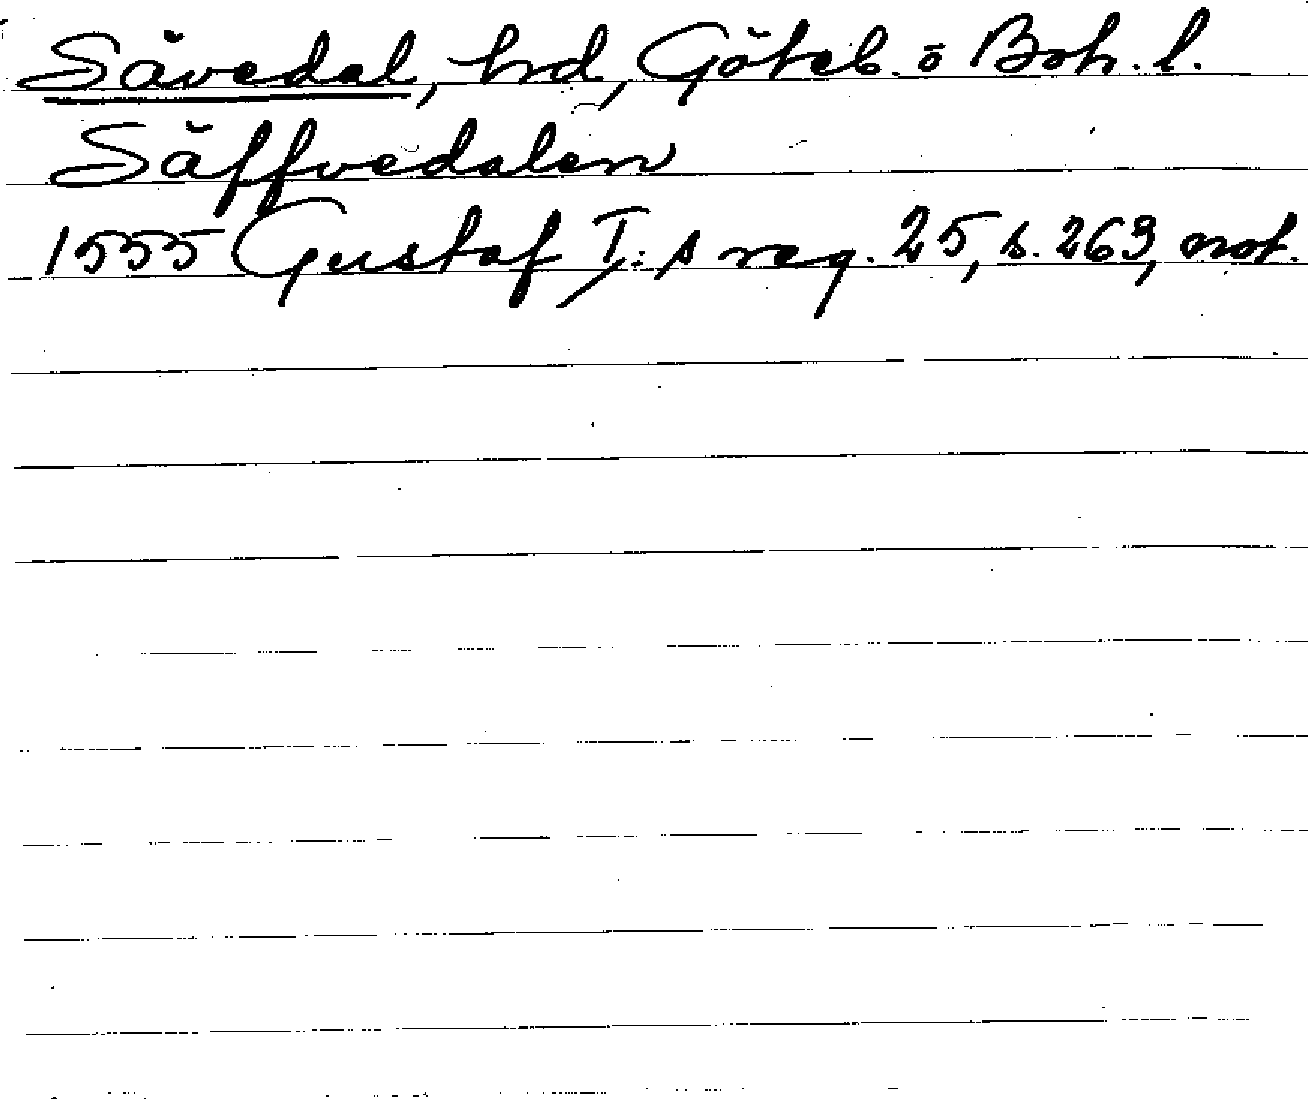 Sävedal, hrd, Göteb. o Boh. l.
Säffvedalen
1555 Gustaf I:s reg. 25, s. 263, not.